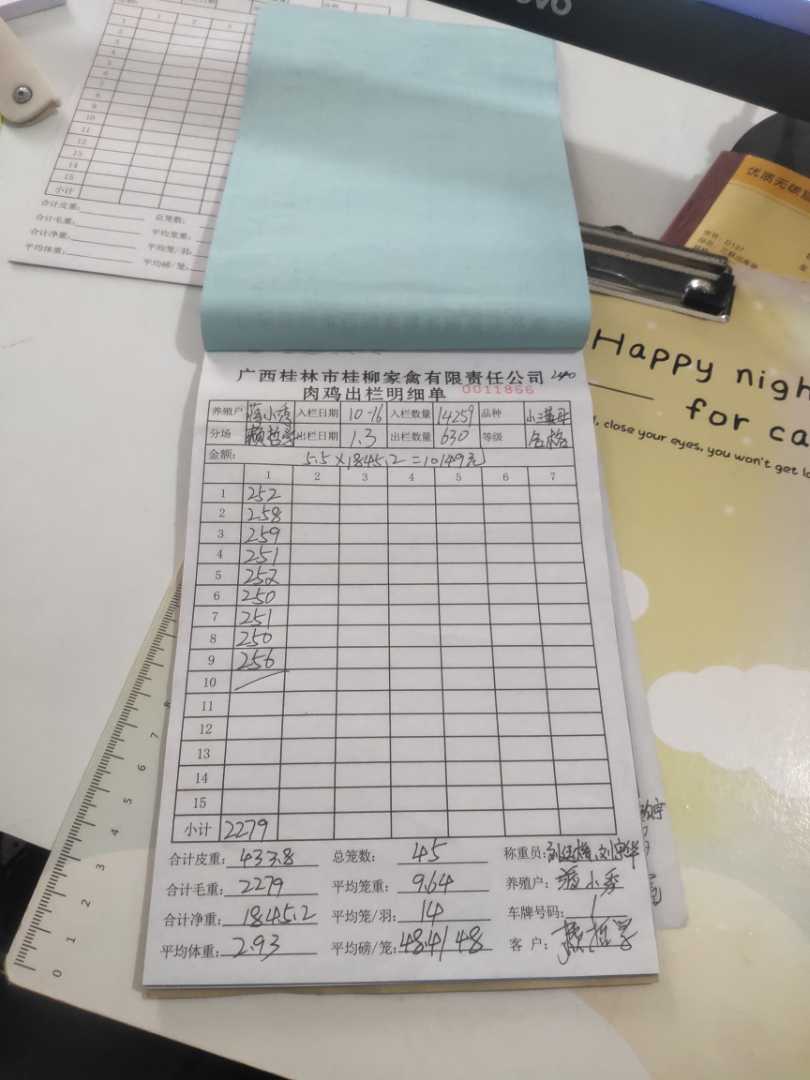 ovo
1 2
10
11
12
13
14
15
小计
合计皮重: 总笼数:
合计毛重: 平均笼重:
合计净重: 平均笼/羽:
平均体重: 平均磅/笼:
优质无碳
Happy nigh
for ca
close your eyes, you won't get lo
广西桂林市桂柳家禽有限责任公司
肉鸡出栏明细单 0011866
养殖户 入栏日期 10-16 入栏数量 14259 品种
分场 赖哲学 出栏日期 1.3 出栏数量 630 等级 合格
金额: 5.5×1845.2=10149元
1 2 3 4 5 6 7
1 252
2 258
3 259
4 251
5 252
6 250
7 251
8 250
9 256
10
11
12
13
14
15
小计 2279
合计皮重: 433.8 总笼数: 45 称重员:
合计毛重: 2279 平均笼重: 9.64 养殖户:
合计净重: 1845.2 平均笼/羽: 14 车牌号码:
平均体重: 2.93 平均磅/笼: 48.4/48 客户: 赖哲学
0 1 2 3 4 5 6 7 8